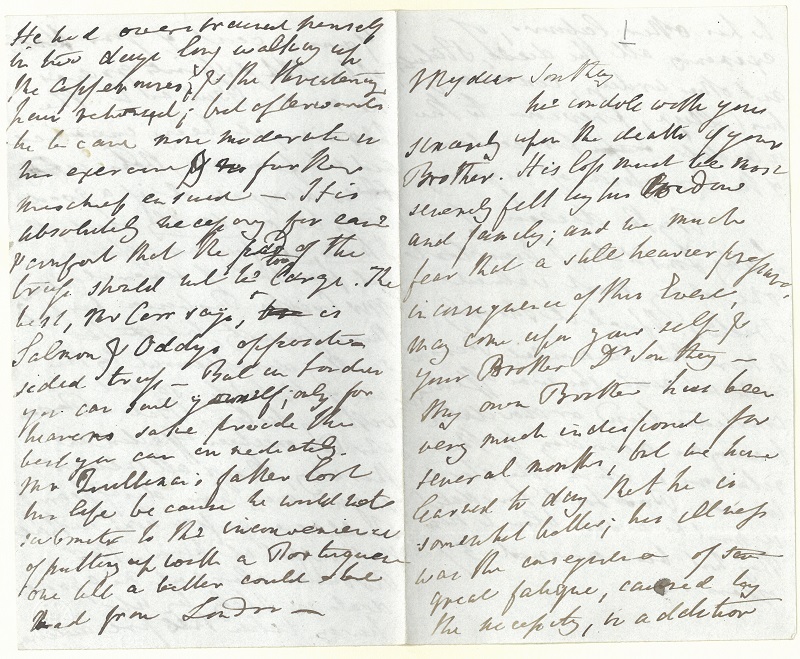 1
My dear Southey
We condole with you
sincerely upon the death of your
Brother. His loss must be most
severely felt by his Widow
and family; and we much
fear that a still heavier pressure,
in consequence of this Event,
may come upon yourself &
your Brother Dr Southey —
My own Brother has been
very much indisposed for
several months, but we have
learned to day that he is
somewhat better; his illness
was the consequence of
great fatigue, caused by
the necessity, in addition
He had overstrained himself
in two days long walking up
the Appennines; & the threatening
have returned; but afterwards
he became more moderate in
his exercise & no further
mischief ensued — It is
absolutely necessary for ease
& comfort that the pad of the
truss should not be too large. The
best, Mr Carr says, is
Salmon & Oddys opposite
sided truss — But in London
you can suit yourself; only for
heavens sake provide the
best you can immediately.
Mr Quillinan's father lost
his life because he would not
submit to the inconvenience
of putting up with a Portuguese
one till a better could be
had from London —